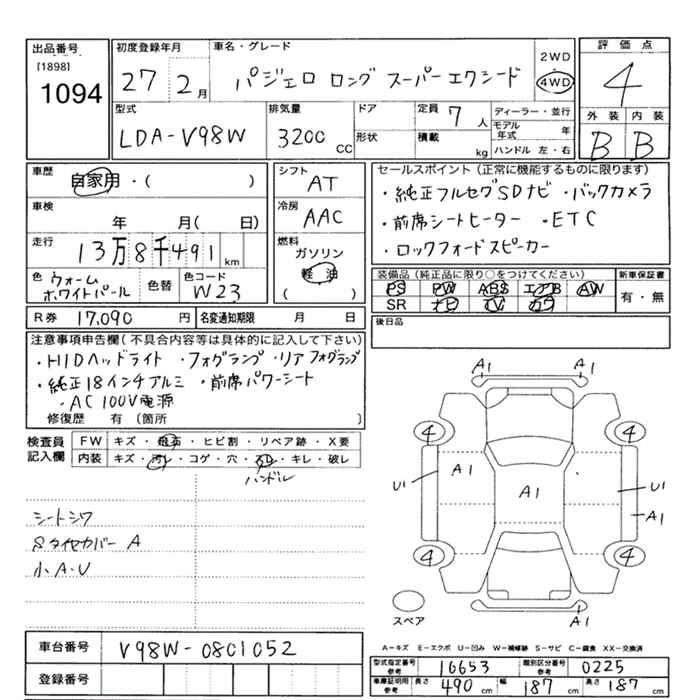 出品番号
[1898]
1094
初度登録年月
27 2月
車名・グレード
パジェロ ロング スーパーエクシード
2WD
4WD
評価点
4
外装 内装
B B
型式
LDA-V98W
排気量
3200 CC
ドア
形状
定員 7 人
積載 kg
ディーラー・並行
モデル年式 年
ハンドル 左・右
車歴
自家用・( )
車検
年 月( 日)
走行
13万8千491 km
色 ウォームホワイトパール
色替
色コード
W23
シフト
AT
冷房
AAC
燃料
ガソリン
軽油
( )
セールスポイント(正常に機能するものに限ります)
・純正フルセグSDナビ ・バックカメラ
・前席シートヒーター ・ETC
・ロックフォードスピーカー
装備品(純正品に限り○をつけてください)
PS PW ABS エアB AW
SR ナビ TV カワ
新車保証書
有・無
R券 17,090 円
名変通知期限 月 日
後日品
注意事項申告欄(不具合内容等は具体的に記入して下さい)
・HIDヘッドライト ・フォグランプ ・リアフォグランプ
・純正18インチアルミ ・前席パワーシート
・AC100V電源
修復歴 有(箇所 )
検査員記入欄
FW キズ・飛石・ヒビ割・リペア跡・X要
内装 キズ・汚レ・コゲ・穴・スレ・キレ・破レ
ハンドル
シートシワ
Sタイヤカバー A
小A・U
A1
4 4
A1
U1 A1 U1
A1
4 4
スペア
A1
A-キズ E-エクボ U-凹み W-補修跡 S-サビ C-腐食 XX-交換済
車台番号 V98W-0801052
登録番号
型式指定番号 参考 16653
類別区分番号 参考 0225
車庫証明用 参考 長さ 490 cm 幅 187 cm 高さ 187 cm